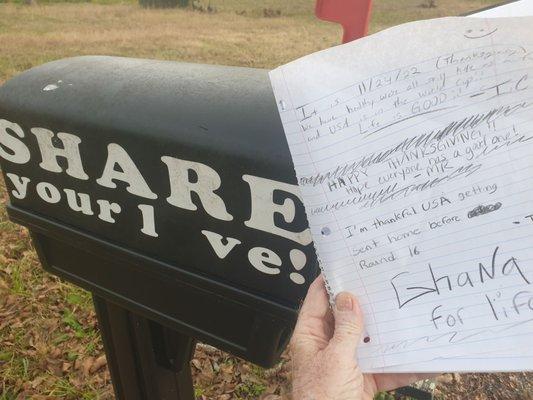 SHARE
your l ve!
It is 11/24/22 (Thanksgiving)
We have healthy
and USA is in the World Cup!!
Life is GOOD!! - I.C
HAPPY THANKSGIVING!!
Hope everyone has a good one!
- MR
I'm thankful USA getting
sent home before
Round 16
Ghana
for life